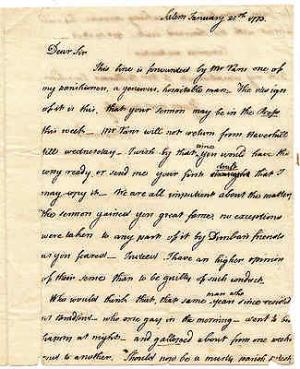 Salem January 25th 1773.
Dear Sir
This line is forwarded by Mr Varr one of
my parishioners, a generous, hospitable man. The design
of it is this, that your sermon may be in the Press
this week. Mr Varr will not return from Haverhill
till wednesday. I wish by that time you would have the
copy ready, or send me your first draught that I
may copy it. We are all impatient about the matter.
The sermon gained you great fame, no exceptions
were taken to any part of it by Dunbar's friends
as you feared. Indeed I have an higher opinion
of their sense than to be guilty of such conduct.
Who would think that that same man who
at one gay in the morning went to be
at night and galloped about from one week
to another. Should now be a parish